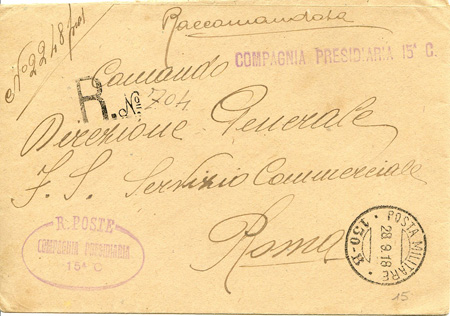 Raccomandata
No 2248/prot
COMPAGNIA PRESIDIARIA 15ª C.
Comando
R. No 704
Direzione Generale
F. S. Servizio Commerciale
Roma
R. POSTE
COMPAGNIA PRESIDIARIA
15ª C
POSTA MILITARE
28.9.18
150-B
15